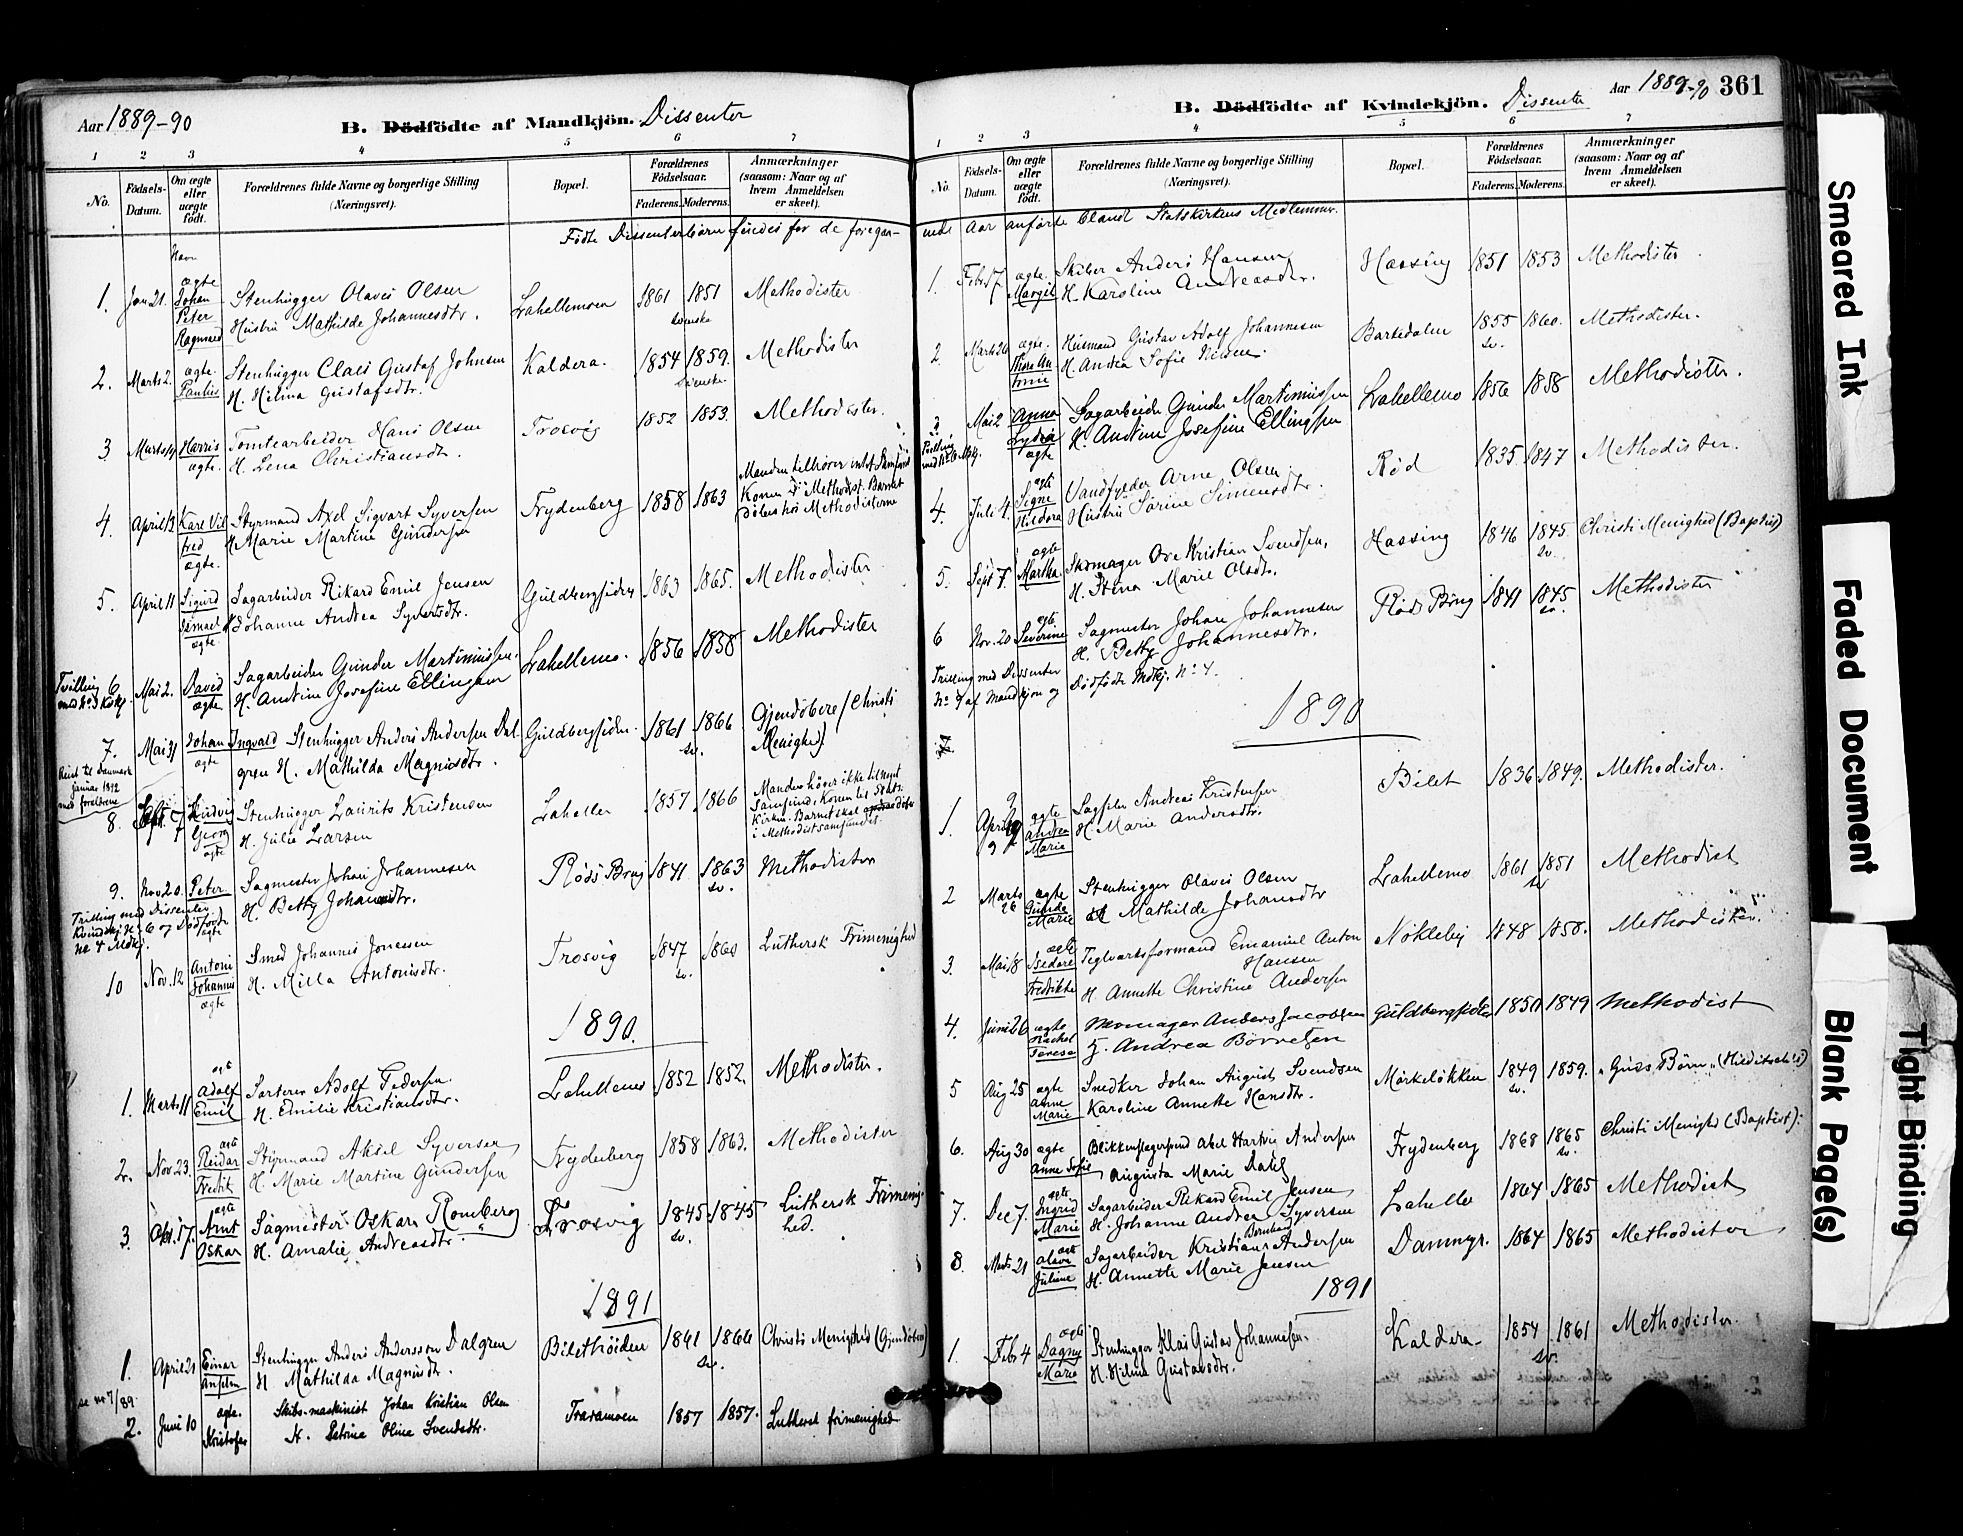 Aar 1889-90
B. Dödfödte af Mandkjön. Dissenter
1 2 3 4 5 6 7
No.
Födsels-Datum.
Om ægte eller uægte födt.
Forældrenes fulde Navne og borgerlige Stilling (Næringsvei).
Bopæl.
Forældrenes Födselsaar.
Faderens. Moderens.
Anmærkninger (saasom: Naar og af hvem Anmeldelsen er skeet).
Födte Dissenterbörn findes for de foregaa-
Navn
1. Jan 21. ægte Johan Peter Ragnvald
Stenhugger Olaves Olsen
Hustru Mathilde Johannesdtr.
Lahellemoen 1861 1851 svenske Methodister
2. Marts 2. ægte. Paulus
Stenhugger Claes Gustaf Johnsen
H. Hilma Gustafsdtr.
Kaldera. 1854 1859. svenske. Methodister
3. Marts 14 Harris ægte.
Tomtearbeider Hans Olsen
H. Lena Christiansdtr.
Trosvig 1852 1853. Methodister.
4. April 13 Karl Vilfred ægte.
Styrmand Axel Sigvart Syversen
H. Marie Martine Gundersen
Frydenberg 1858 1863
Manden tilhører intet Samfund
Konen Methodist. Barnet
döbes hos Methodisterne
5. April 11 Sigurd Ismael ægte
Sagarbeider Rikard Emil Jensen
H. Johanne Andrea Syvertsdtr.
Guldbergsiden 1863 1865. Methodister
6 Mai 2. David ægte
Tvilling med No 3 Kvkj.
Sagarbeider Gunder Martiniussen.
H. Andrine Josefine Ellingsen
Lahellemo. 1856 1858 Methodister
7. Mai 31 Johan Ingvald ægte
Stenhugger Anders Andersen Dalgren H. Mathilda Magnusdtr.
Guldbergsiden. 1861 1866 sv. Gjendöbere (Christi Menighed)
Reist til Danmark januar 1892 med forældrene
8. Sept. 7 Ludvig Georg ægte
Stenhugger Laurits Kristensen
H. Julie Larsen
Lahellen 1857 1866
Manden hører ikke til noget
Samfund, Konen til Stats-
Kirken. Barnet skal
i Methodistsamfundet.
9. Nov 20. Peter ægte
Sagmester Johan Johannesen
H. Betty Johansdtr.
Röds Brug 1841 1863 sv. Methodister
Trilling med Dissenter
Kvindekj No 6 og Dödfödte
No 4 Mdkj.
10 Nov. 12 Antoni Johannes ægte
Smed Johannes Jonesen
H. Milla Antonisdtr.
Trosvig 1847 sv. 1860 Luthersk Frimenighed
1890.
1. Marts 11 ægte Adolf Emil
Sorterer Adolf Pedersen.
H. Emilie Kristiansdtr.
Lahellemo 1852 1852. Methodister.
2. Nov. 23. ægte Reidar Fredrik
Styrmand Aksel Syversen
H. Marie Martine Gundersen
Frydenberg 1858 1863. Methodister
3. Okt. 17. ægte Arnt Oskar
Sagmester Oskar Romberg
H. Amalie Andreasdtr.
Trosvig 1845 sv. 1845 Luthersk Frimenighed.
1891
1. April 21 Einar Anselm
Stenhugger Anders Andersson Dalgren
H Mathilda Magnusdtr.
Bilethöiden 1861 1866 sv. Christi Menighed (Gjendöbere)
se nr 7/89.
2. Juni 10 ægte. Kristofer
Skibs-maskinist Johan Kristian Olsen
H. Petrine Oline Svendsdtr.
Traramoen 1857 1857. Luthersk frimenighed
B. Dödfödte af Kvindekjön. Dissenter
Aar 1889-90 361
1 2 3 4 5 6 7
No.
Födsels-Datum.
Om ægte eller uægte födt.
Forældrenes fulde Navne og borgerlige Stilling (Næringsvei).
Bopæl.
Forældrenes Födselsaar.
Faderens. Moderens.
Anmærkninger (saasom: Naar og af hvem Anmeldelsen er skeet).
ende Aar anførte blandt Statskirkens Medlemmer.
1. Febr. 17 ægte. Margit
Skiber Anders Hansen
H. Karoline Andreasdtr.
Hassing 1851 1853 Methodister
2. Marts 26 ægte. Thora Antonie
Husmand Gustav Adolf Johannesen
H. Andrea Sofie Nilsen.
Bartedalen 1855 sv. 1860. Methodister.
3 Mai 2 Anna Lydia ægte
Tvilling med No 6 Mdkj.
Sagarbeider Gunder Martiniussen
H. Andrine Josefine Ellingsen
Lahellemo 1856 1858 Methodister.
4. Juli 4. ægte Signe Hildora
Vandfylder Arne Olsen.
Hustru Sörine Simensdtr.
Röd 1835 1847 Methodister.
5. Sept 7. ægte Martha
Skomager Ove Kristian Svendsen,
H. Stina Marie Olsdtr.
Hassing 1846 1845. sv. Christi Menighed (Baptist)
6 Nov. 20 ægte Severine
Sagmester Johan Johannesen
H. Betty Johannesdtr.
Röds Brug 1841 1845 sv. Methodister
Trilling med Dissenter
No 9 af Mandkjön og Dödfödt Mdkj. No 4.
1890
1. April 9 ægte Andrea Marie
Sagfiler Andreas Kristensen
H. Marie Andersdtr.
Bilet 1836 1849. Methodister.
2 Marts 26 ægte Gunda Marie
Stenhugger Olaves Olsen
H Mathilde Johansdtr
Lahellemo 1861 1851 sv Methodist
3. Mai 18 ægte Isidore Fredrikke
Teglværksformand Emanuel Anton Hansen
H Annette Christine Andersen
Nökleby 1848 1858. Methodister.
4. Juni 26 ægte Rachel Teresa
Skomager Anders Jacobsen
H. Andrea Börresen
Guldbergsiden 1850 1849 Methodist
5 Aug 25 ægte Anne Marie
Snedker Johan August Svendsen
Karoline Annette Hansdtr.
Mörkelökken 1849 sv. 1859. "Guds Börn" (Hilditsch's)
6. Aug 30 ægte Anne Sofie
Blikkenslagersvend Abel Hartvig Andersen
Augusta Marie Dahl
Frydenberg 1868 1865 sv. Christi Menighed (Baptist).
7. Dec 7. ægte Ingrid Marie
Sagarbeider Rikard Emil Jensen
H. Johanne Andrea Syversen
Lahelle 1864 1865 Methodist
8. Marts 21 ægte Olava Juliane
Sagarbeider Kristian Bernhard Andersen
H. Annette Marie Jensen
Dammyr. 1864 1865 Methodister
1891
1. Febr 4 ægte Dagny Marie
Stenhugger Klas Gustav Johannesen.
H. Hilma Gustavsdtr.
Kaldera 1854 1861 sv. Methodister.
Smeared Ink
Faded Document
Tight Binding
Blank Page(s)